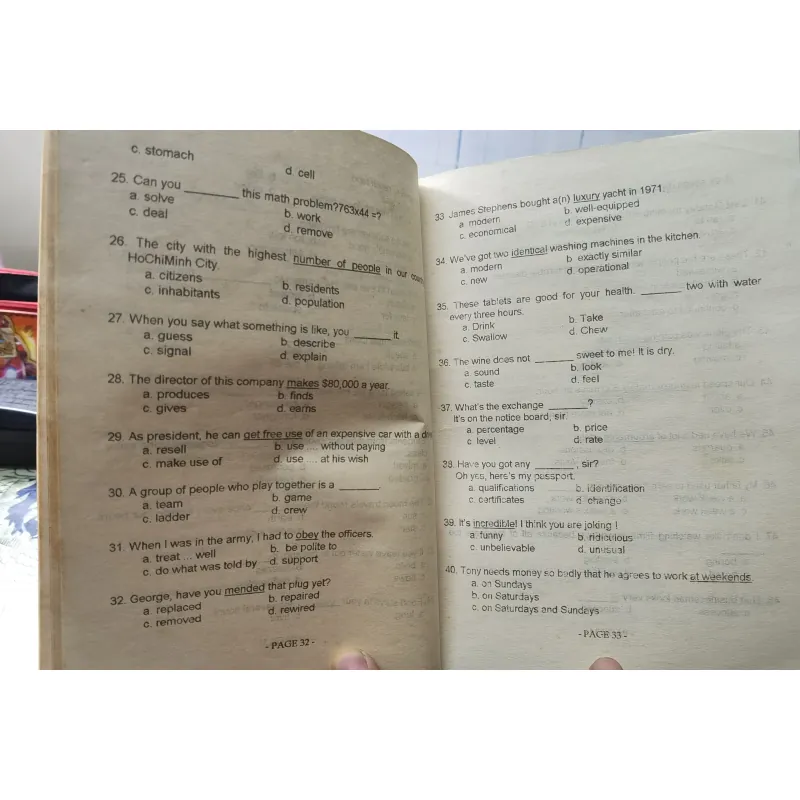 c. stomach
d. cell
25. Can you ________ this math problem?763x44 =?
a. solve
b. work
c. deal
d. remove
26. The city with the highest number of people in our
HoChiMinh City.
a. citizens
b. residents
c. inhabitants
d. population
27. When you say what something is like, you ______ it.
a. guess
b. describe
c. signal
d. explain
28. The director of this company makes $80,000 a year.
a. produces
b. finds
c. gives
d. earns
29. As president, he can get free use of an expensive car with a
a. resell
b. use .... without paying
c. make use of
d. use .... at his wish
30. A group of people who play together is a ______.
a. team
b. game
c. ladder
d. crew
31. When I was in the army, I had to obey the officers.
a. treat ... well
b. be polite to
c. do what was told by
d. support
32. George, have you mended that plug yet?
a. replaced
b. repaired
c. removed
d. rewired
- PAGE 32 -
33. James Stephens bought a(n) luxury yacht in 1971.
a. modern
b. well-equipped
c. economical
d. expensive
34. We've got two identical washing machines in the kitchen.
a. modern
b. exactly similar
c. new
d. operational
35. These tablets are good for your health. ______ two with water
every three hours.
a. Drink
b. Take
c. Swallow
d. Chew
36. The wine does not ______ sweet to me! It is dry.
a. sound
b. look
c. taste
d. feel
37. What's the exchange ______?
It's on the notice board, sir.
a. percentage
b. price
c. level
d. rate
38. Have you got any ______, sir?
Oh yes, here's my passport.
a. qualifications
b. identification
c. certificates
d. change
39. It's incredible! I think you are joking !
a. funny
b. ridiculous
c. unbelievable
d. unusual
40. Tony needs money so badly that he agrees to work at weekends.
a. on Sundays
b. on Saturdays
c. on Saturdays and Sundays
- PAGE 33 -